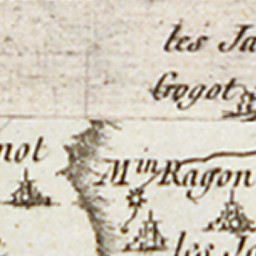 les Ja
Gogot
not
Min Ragon
les Jo